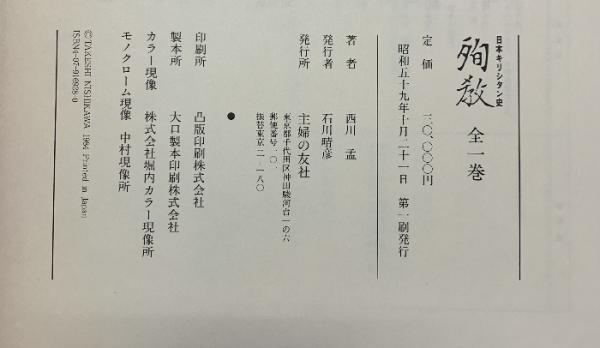 日本キリシタン史
殉教 全一巻
定価 三〇、〇〇〇円
昭和五十九年十月二十一日 第一刷発行
著者 西川 孟
発行者 石川晴彦
発行所 主婦の友社
東京都千代田区神田駿河台一の六
郵便番号一〇一
振替東京二-一八〇
●
印刷所 凸版印刷株式会社
製本所 大口製本印刷株式会社
カラー現像 株式会社堀内カラー現像所
モノクローム現像 中村現像所
© TAKESHI NISHIKAWA 1984 Printed in Japan
ISBN4-07-916928-0